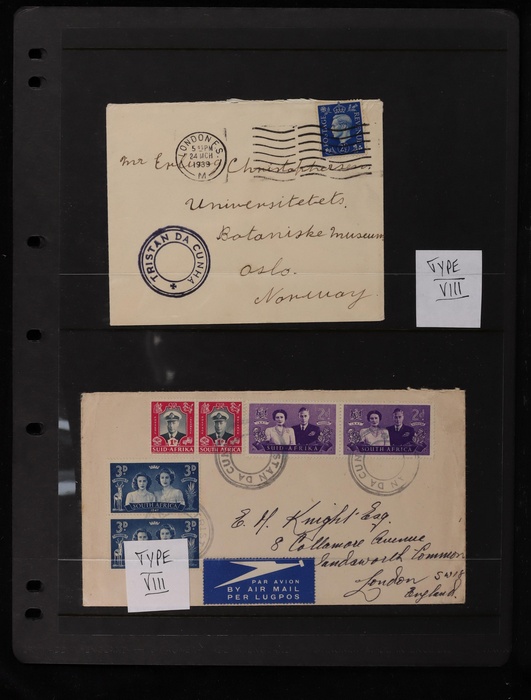 LONDON F.S.
5 15 PM
24 MCH
1939
M
POSTAGE REVENUE
Mr Erling Christophersen
Universitetets
Botaniske Museum
Oslo.
Norway.
TRISTAN DA CUNHA
TYPE
VIII
SUID-AFRIKA
SOUTH AFRICA
2d
SUID-AFRIKA
2d
SOUTH AFRICA
TRISTAN DA CUN
TAN DA CUN
3D
SOUTH AFRICA
3D
E. M. Knight Esq.
8 Collamore Avenue
Wandsworth Common
London SW18
England.
TYPE
VIII
PAR AVION
BY AIR MAIL
PER LUGPOS